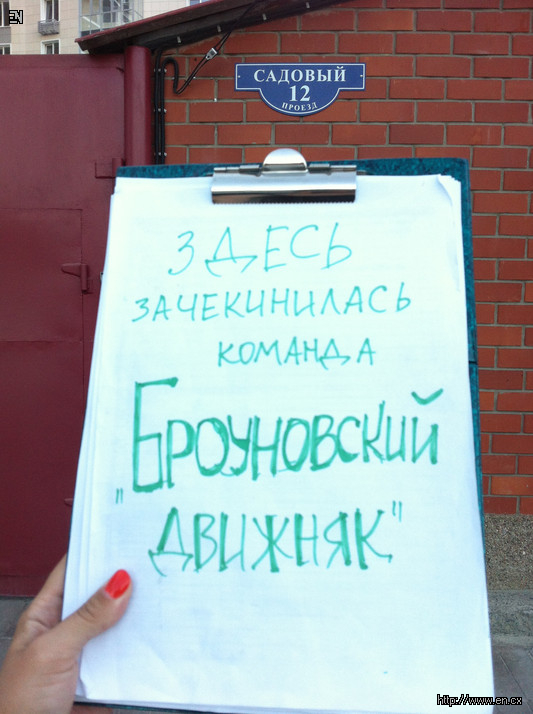 EN
САДОВЫЙ
12
ПРОЕЗД
ЗДЕСЬ
ЗАЧЕКИНИЛАСЬ
КОМАНДА
"БРОУНОВСКИЙ
ДВИЖНЯК"
http://www.en.cx